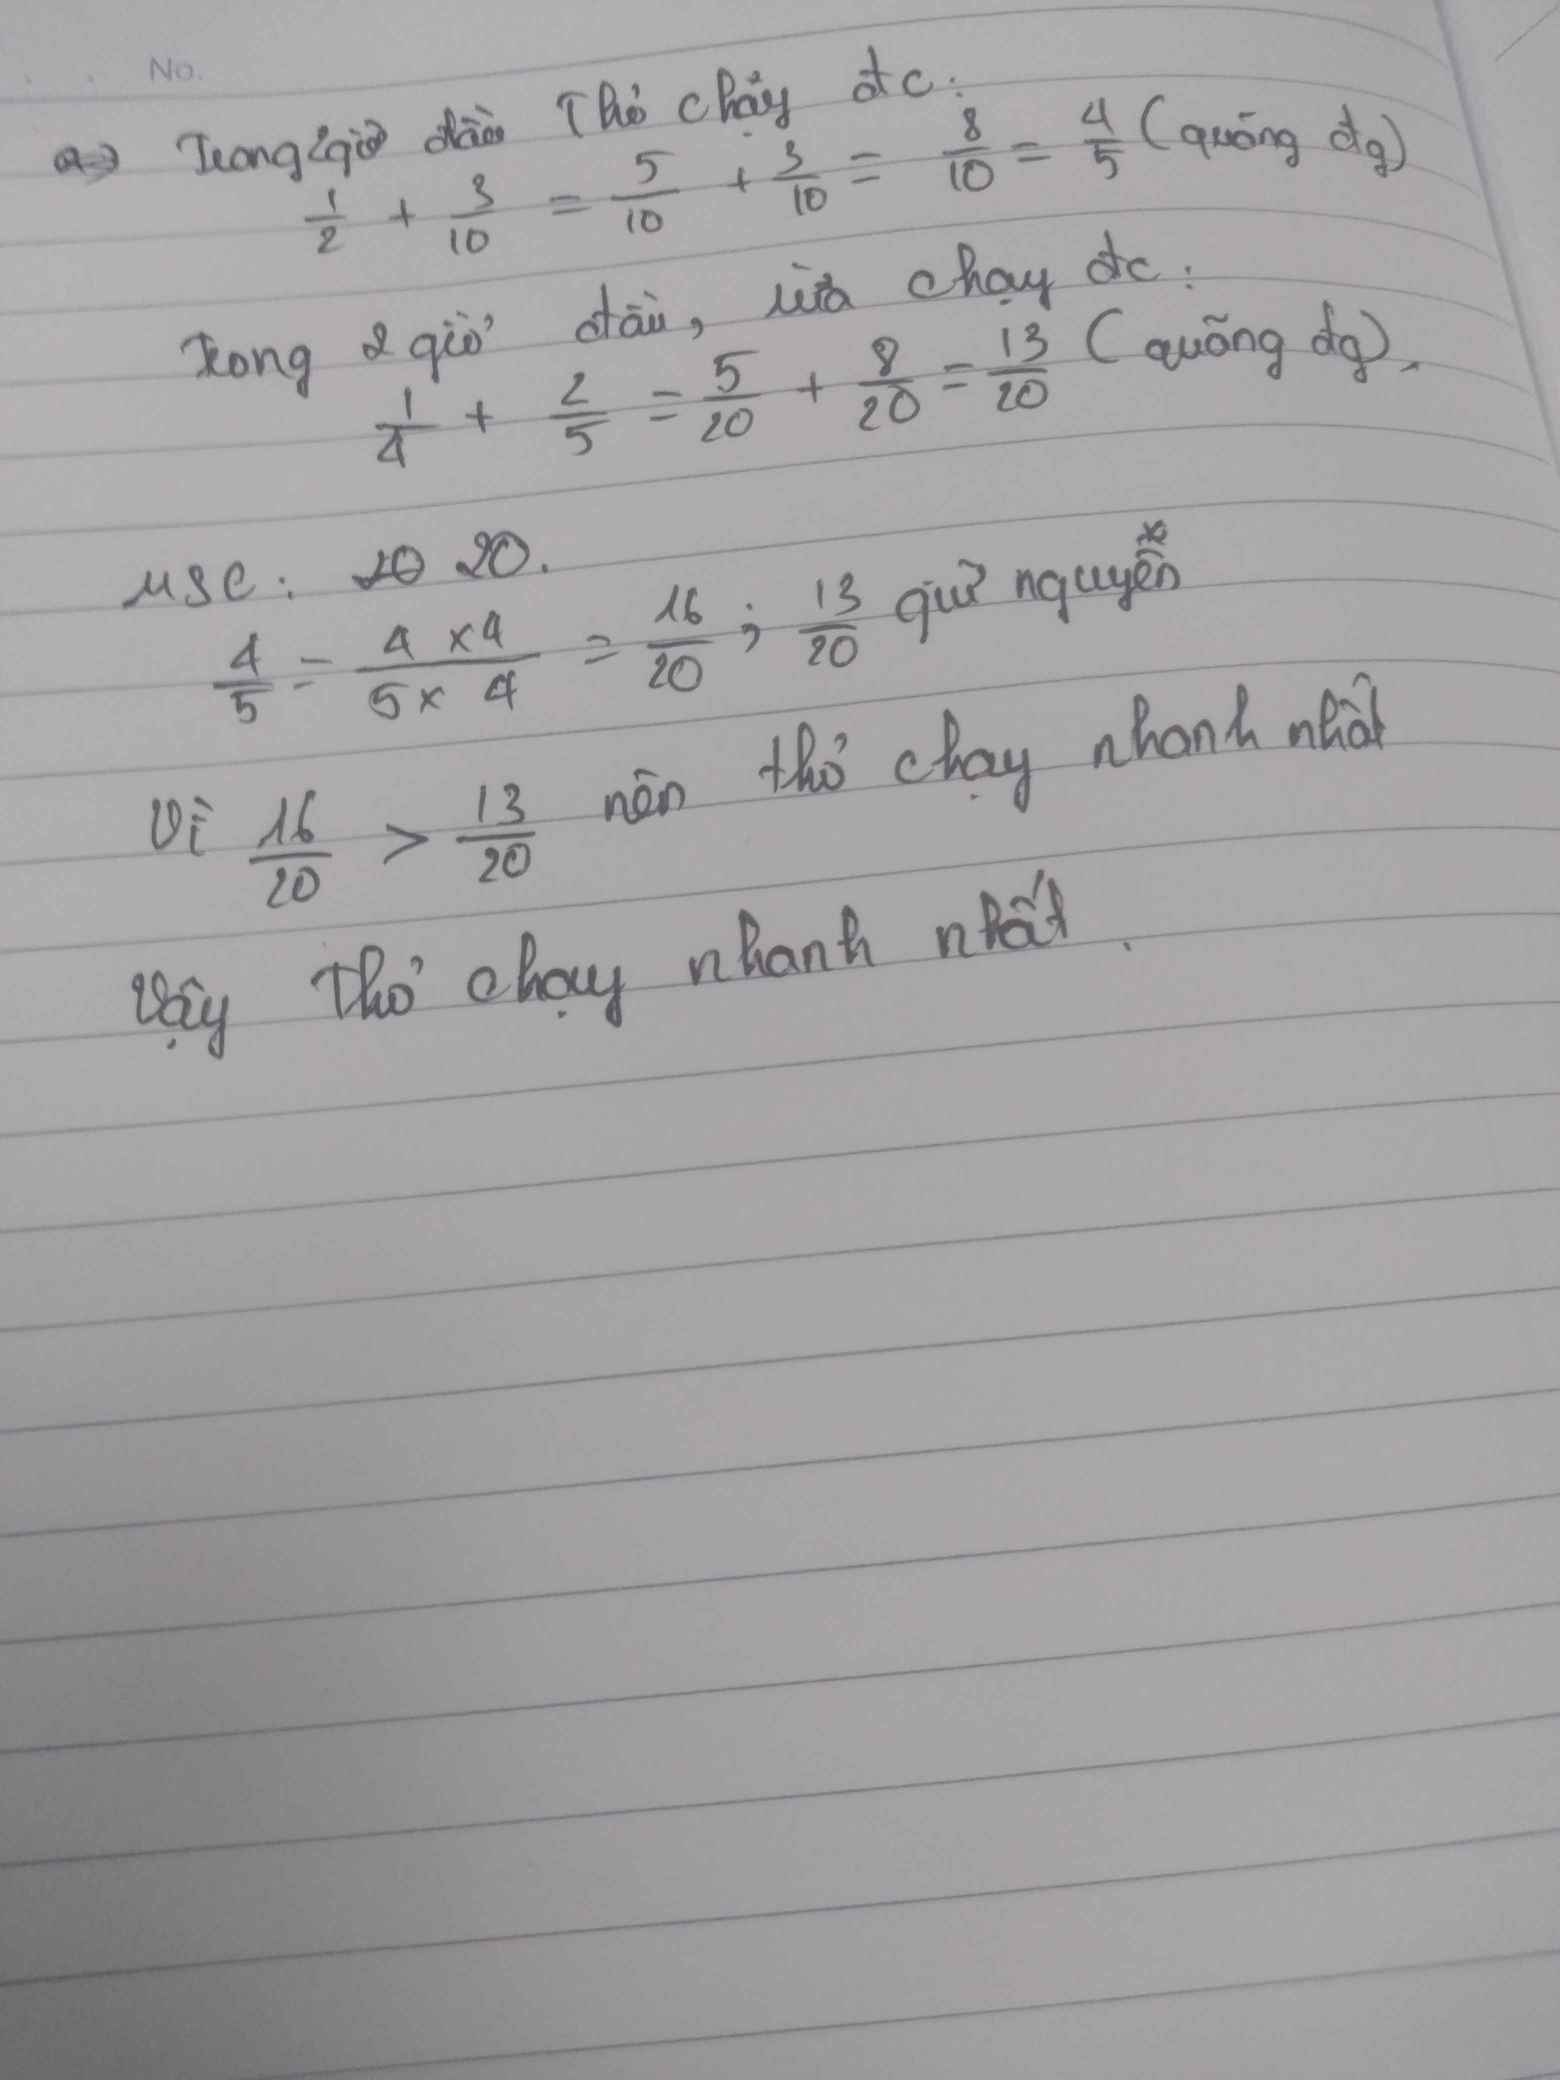 No.
a) Trong 2 giờ đầu Thỏ chạy đc:
1/2 + 3/10 = 5/10 + 3/10 = 8/10 = 4/5 (quãng đg)
Trong 2 giờ đầu, rùa chạy đc:
1/4 + 2/5 = 5/20 + 8/20 = 13/20 (quãng đg).
MSC: 20.
4/5 = 4 x 4 / 5 x 4 = 16/20 ; 13/20 giữ nguyên
Vì 16/20 > 13/20 nên thỏ chạy nhanh nhất
Vậy Thỏ chạy nhanh nhất.